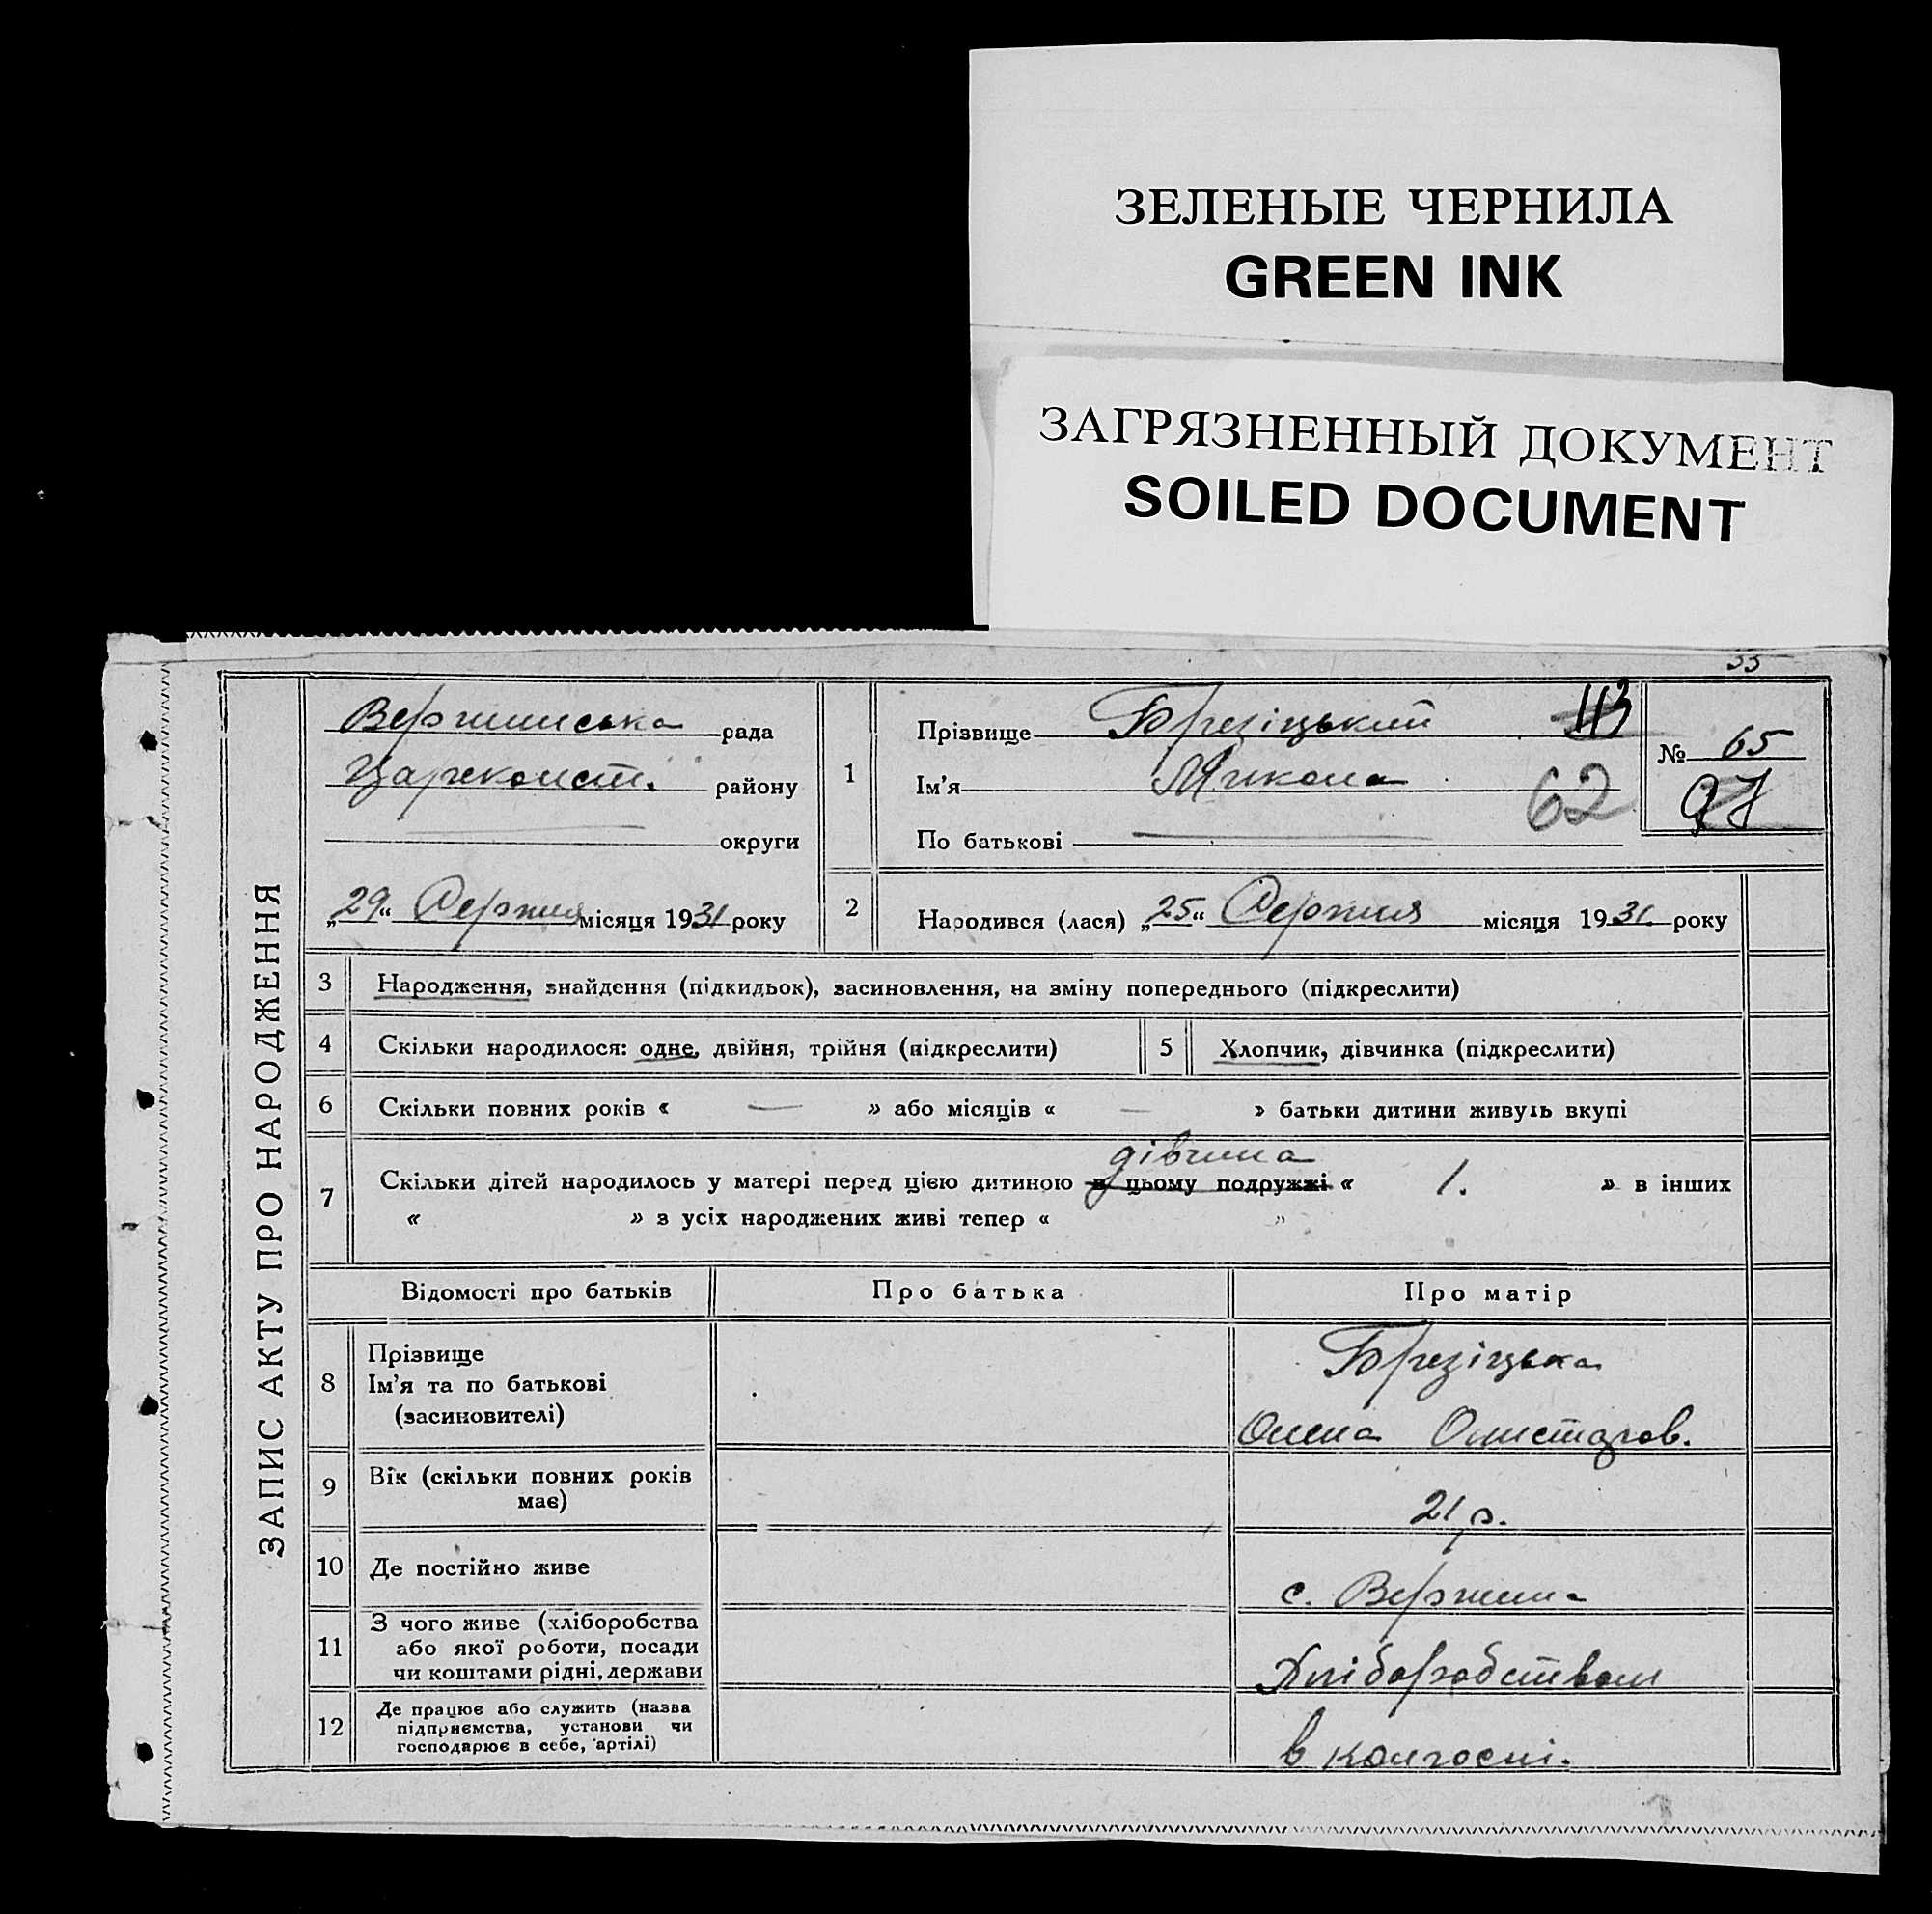 ЗЕЛЕНЫЕ ЧЕРНИЛА
GREEN INK
ЗАГРЯЗНЕННЫЙ ДОКУМЕНТ
SOILED DOCUMENT
ЗАПИС АКТУ ПРО НАРОДЖЕННЯ
Вершинська рада
району
округи
„29“ Серпня місяця 1931 року
1
Прізвище Брезіцький 113
Ім'я Микола 62
По батькові
№ 65
97
2
Народився (лася) „25“ Серпня місяця 1931 року
3 Народження, знайдення (підкидьок), засиновлення, на зміну попереднього (підкреслити)
4 Скільки народилося: одне, двійня, трійня (підкреслити) 5 Хлопчик, дівчинка (підкреслити)
6 Скільки повних років « — » або місяців « — » батьки дитини живуть вкупі
дівчина
7 Скільки дітей народилось у матері перед цією дитиною в цьому подружжі « 1. » в інших
« » з усіх народжених живі тепер « »
Відомості про батьків Про батька Про матір
8 Прізвище
Ім'я та по батькові
(засиновителі)
Брезіцька
Олена
9 Вік (скільки повних років
має)
21 р.
10 Де постійно живе
с. Вершина
11 З чого живе (хліборобства
або якої роботи, посади
чи коштами рідні, держави
Хліборобством
12 Де працює або служить (назва
підприємства, установи чи
господарює в себе, артілі)
в колгоспі.